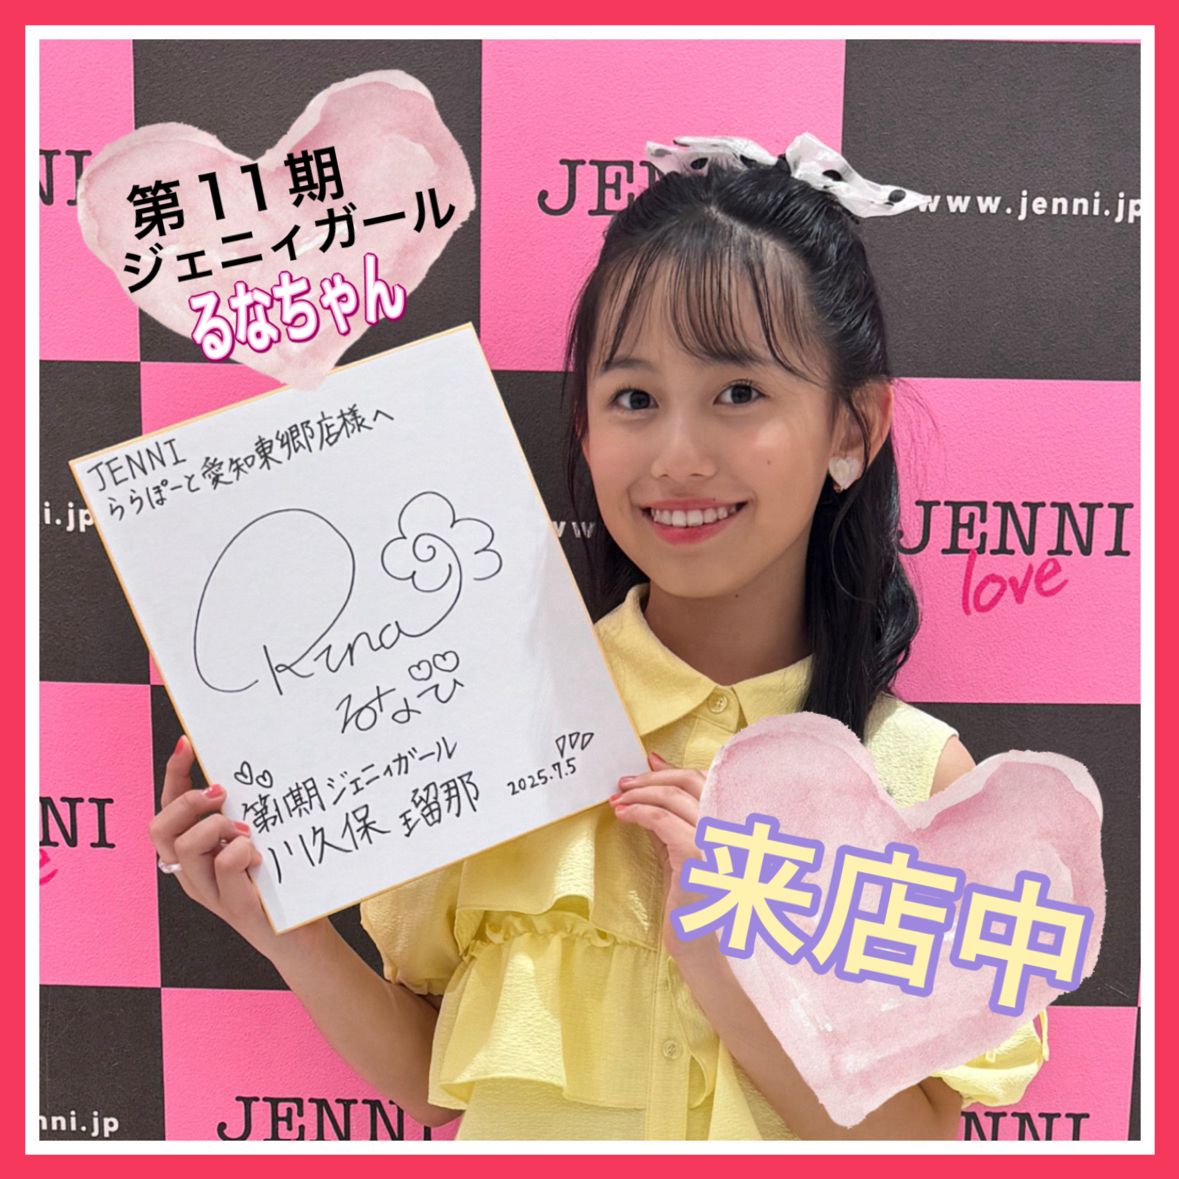 第11期
ジェニィガール
るなちゃん
JENNI
www.jenni.jp
JENNI
ららぽーと愛知東郷店様へ
Runa
るなぴ
第11期ジェニィガール
川久保 瑠那
2025.7.5
JENNI
love
来店中
JENNI
JENNI